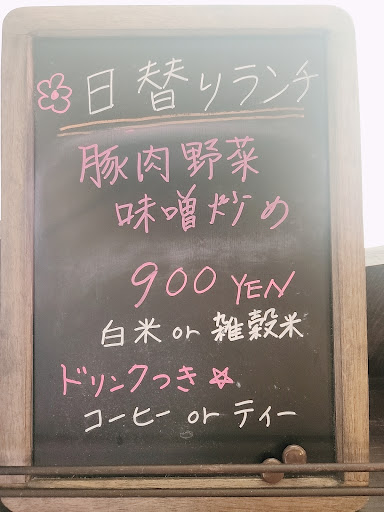 日替りランチ
豚肉野菜
味噌炒め
900 YEN
白米 or 雑穀米
ドリンクつき☆
コーヒー or ティー